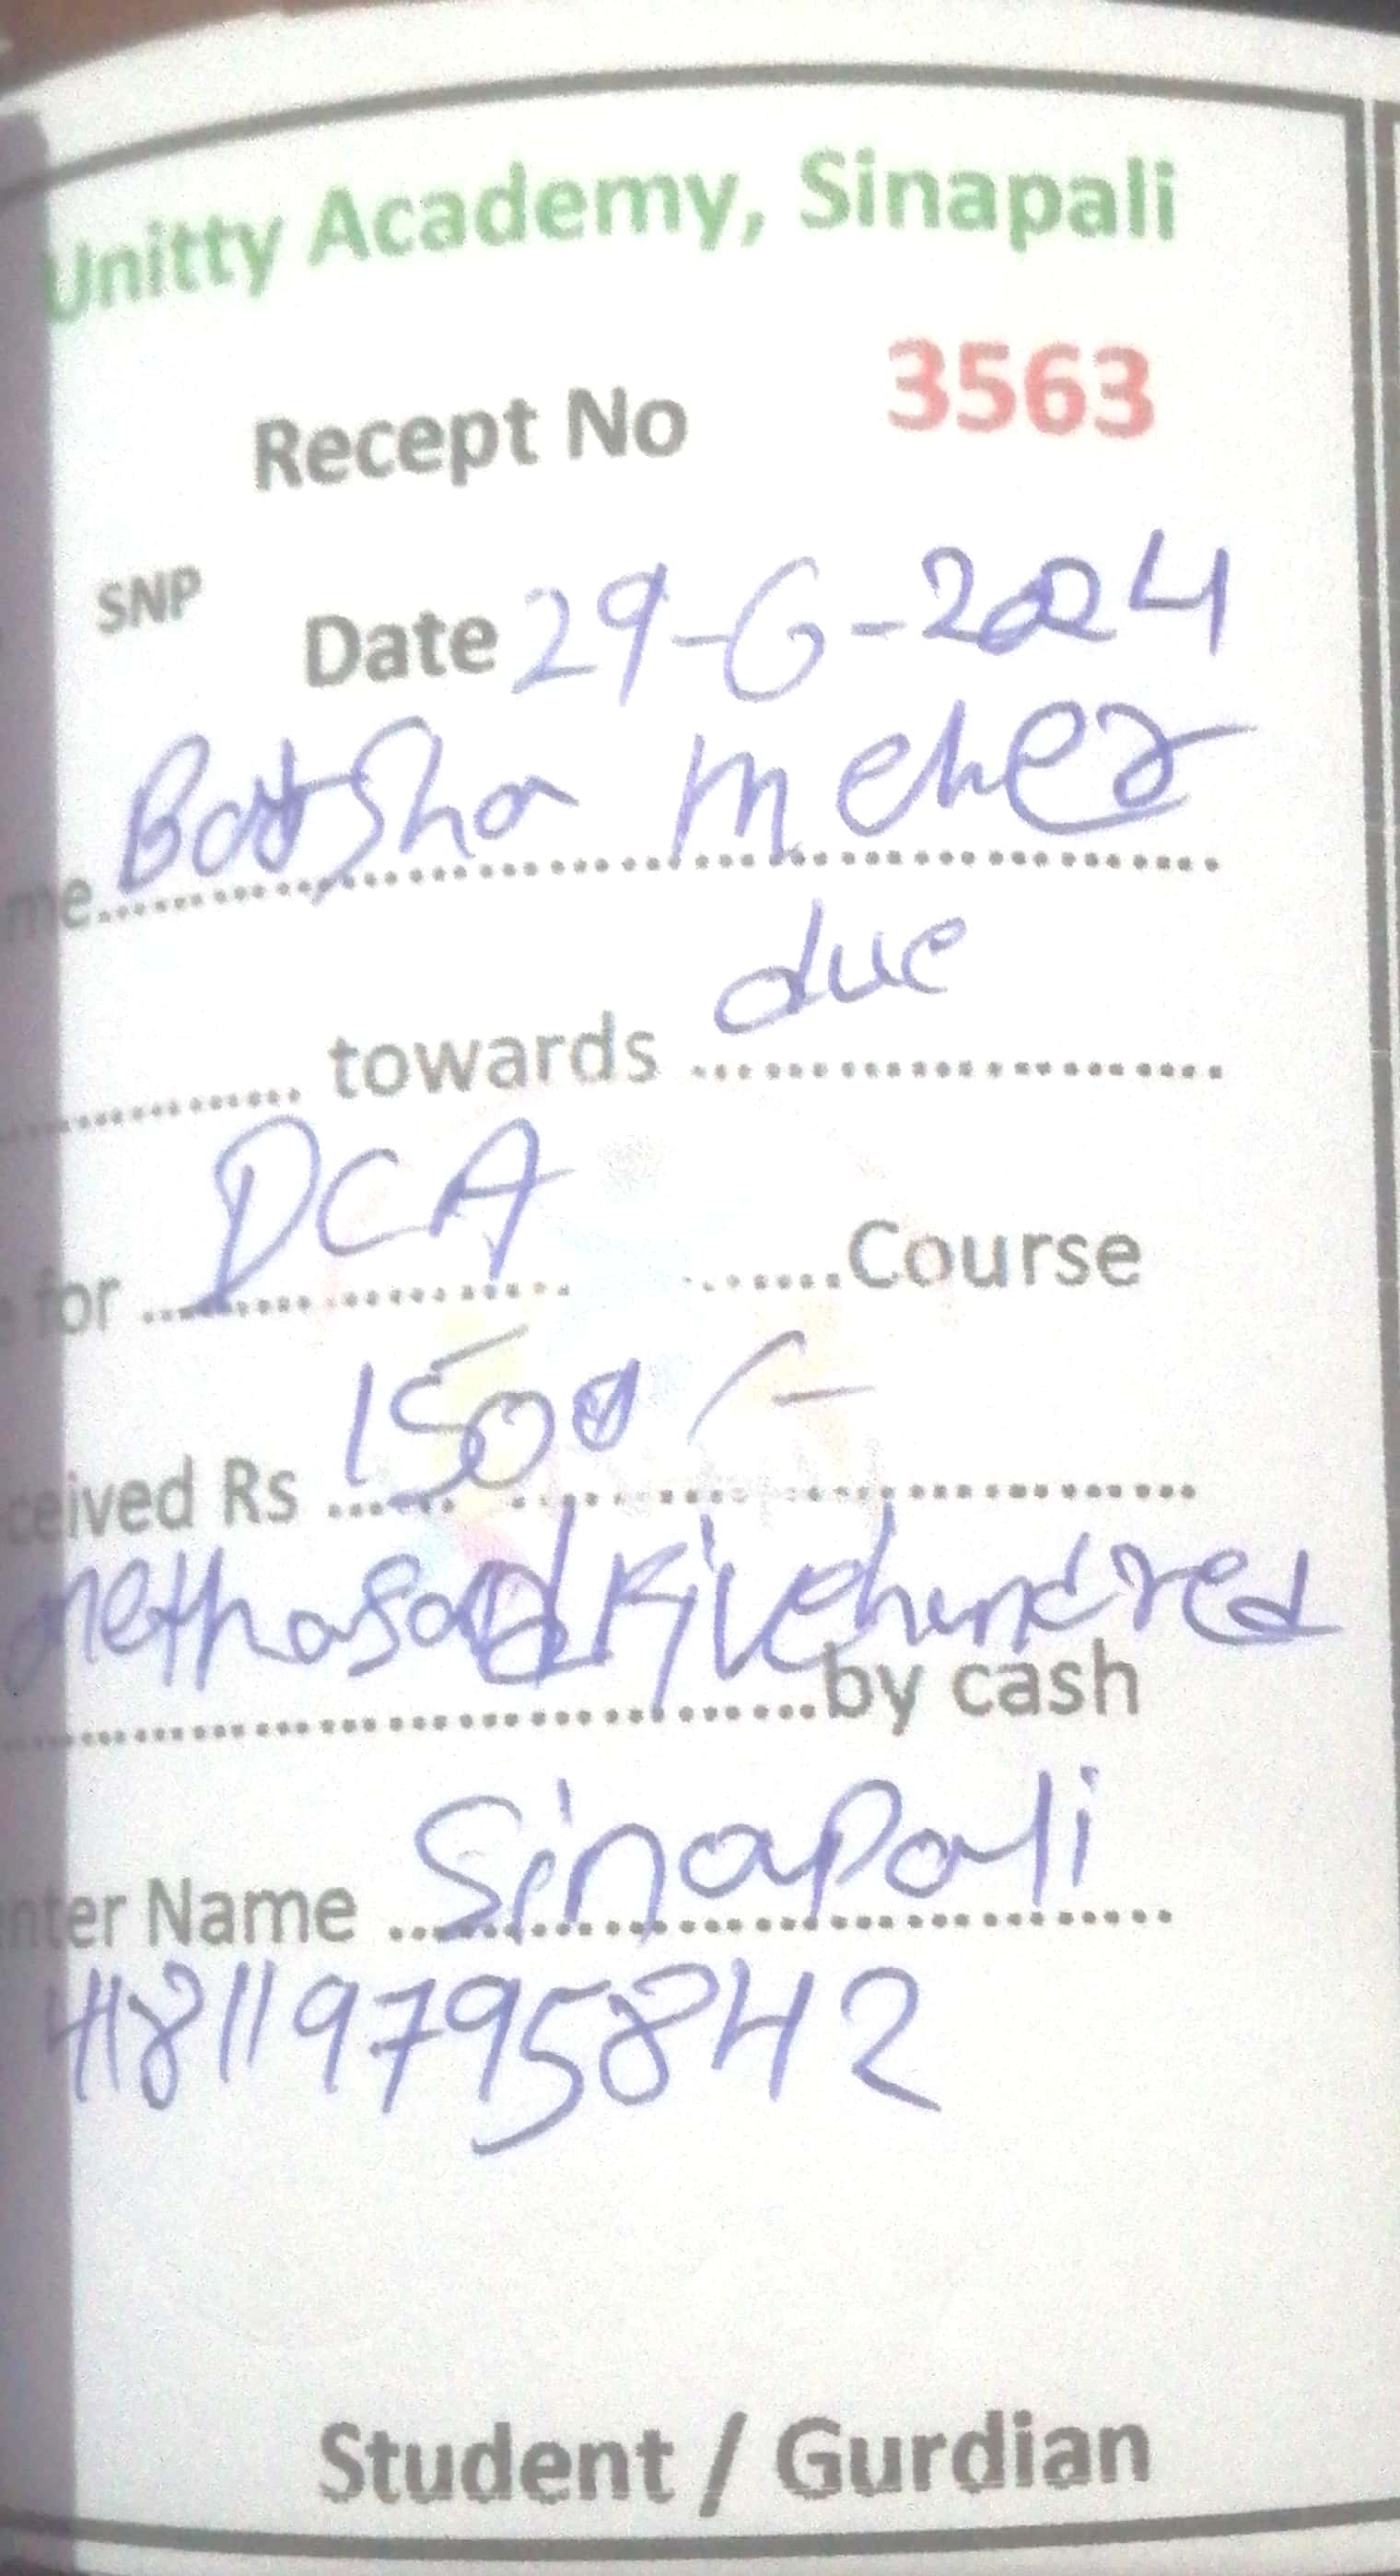 Unitty Academy, Sinapali
Recept No 3563
SNP
Date 29-6-2024
me Barsha meher
towards due
for DCA Course
ceived Rs 1500/-
onethasand Fivehundred
by cash
nter Name Sinapali
9795842
Student / Gurdian